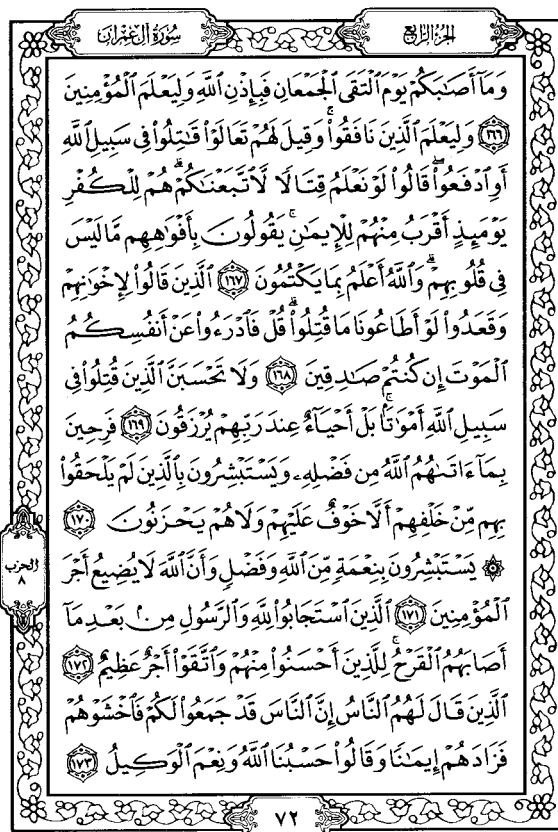 الجزء الرابع
سورة آل عمران
وَمَآ أَصَٰبَكُمْ يَوْمَ ٱلْتَقَى ٱلْجَمْعَانِ فَبِإِذْنِ ٱللَّهِ وَلِيَعْلَمَ ٱلْمُؤْمِنِينَ
١٦٦ وَلِيَعْلَمَ ٱلَّذِينَ نَافَقُوا۟ ۚ وَقِيلَ لَهُمْ تَعَالَوْا۟ قَٰتِلُوا۟ فِى سَبِيلِ ٱللَّهِ
أَوِ ٱدْفَعُوا۟ ۖ قَالُوا۟ لَوْ نَعْلَمُ قِتَالًا لَّٱتَّبَعْنَٰكُمْ ۗ هُمْ لِلْكُفْرِ
يَوْمَئِذٍ أَقْرَبُ مِنْهُمْ لِلْإِيمَٰنِ ۚ يَقُولُونَ بِأَفْوَٰهِهِم مَّا لَيْسَ
فِى قُلُوبِهِمْ ۗ وَٱللَّهُ أَعْلَمُ بِمَا يَكْتُمُونَ ١٦٧ ٱلَّذِينَ قَالُوا۟ لِإِخْوَٰنِهِمْ
وَقَعَدُوا۟ لَوْ أَطَاعُونَا مَا قُتِلُوا۟ ۗ قُلْ فَٱدْرَءُوا۟ عَنْ أَنفُسِكُمُ
ٱلْمَوْتَ إِن كُنتُمْ صَٰدِقِينَ ١٦٨ وَلَا تَحْسَبَنَّ ٱلَّذِينَ قُتِلُوا۟ فِى
سَبِيلِ ٱللَّهِ أَمْوَٰتًۢا ۚ بَلْ أَحْيَآءٌ عِندَ رَبِّهِمْ يُرْزَقُونَ ١٦٩ فَرِحِينَ
بِمَآ ءَاتَىٰهُمُ ٱللَّهُ مِن فَضْلِهِۦ وَيَسْتَبْشِرُونَ بِٱلَّذِينَ لَمْ يَلْحَقُوا۟
بِهِم مِّنْ خَلْفِهِمْ أَلَّا خَوْفٌ عَلَيْهِمْ وَلَا هُمْ يَحْزَنُونَ ١٧٠
۞ يَسْتَبْشِرُونَ بِنِعْمَةٍ مِّنَ ٱللَّهِ وَفَضْلٍ وَأَنَّ ٱللَّهَ لَا يُضِيعُ أَجْرَ
ٱلْمُؤْمِنِينَ ١٧١ ٱلَّذِينَ ٱسْتَجَابُوا۟ لِلَّهِ وَٱلرَّسُولِ مِنۢ بَعْدِ مَآ
أَصَابَهُمُ ٱلْقَرْحُ ۚ لِلَّذِينَ أَحْسَنُوا۟ مِنْهُمْ وَٱتَّقَوْا۟ أَجْرٌ عَظِيمٌ ١٧٢
ٱلَّذِينَ قَالَ لَهُمُ ٱلنَّاسُ إِنَّ ٱلنَّاسَ قَدْ جَمَعُوا۟ لَكُمْ فَٱخْشَوْهُمْ
فَزَادَهُمْ إِيمَٰنًا وَقَالُوا۟ حَسْبُنَا ٱللَّهُ وَنِعْمَ ٱلْوَكِيلُ ١٧٣
الحزب
٨
٧٢